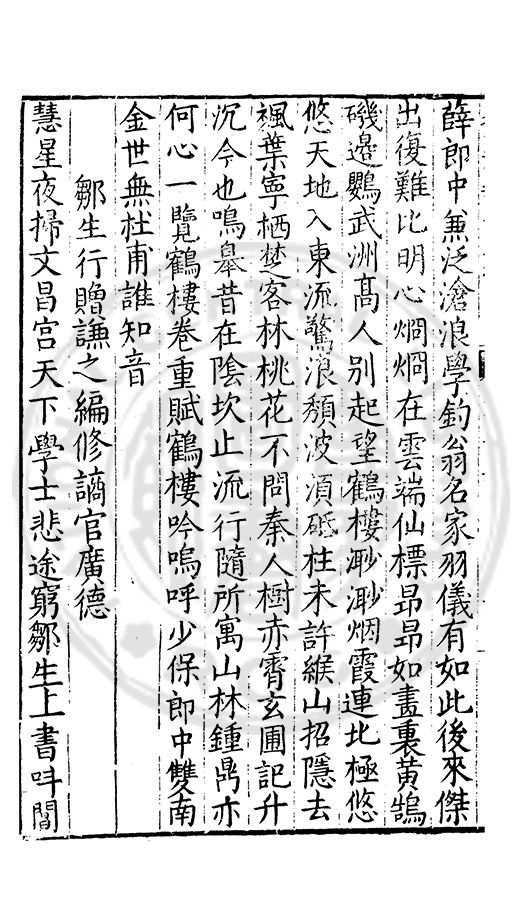 薛郎中兼泛滄浪學釣翁名家羽儀有如此後來傑
出復難比明心烱烱在雲端仙標昂昂如畫裏黃鵠
磯邊鸚武洲髙人别起望鶴樓渺渺烟霞連北極悠
悠天地入東流驚浪頽波湏砥柱未許緱山招隱去
楓葉寧栖楚客林桃花不問秦人樹赤霄玄圃記升
沉今也鳴臯昔在陰坎止流行隨所寓山林鍾鼎亦
何心一覽鶴樓卷重賦鶴樓吟嗚呼少保郎中雙南
金世無杜甫誰知音
鄒生行贈謙之編修謫官廣德
慧星夜掃文昌宫天下學士悲途窮鄒生上書呌閶